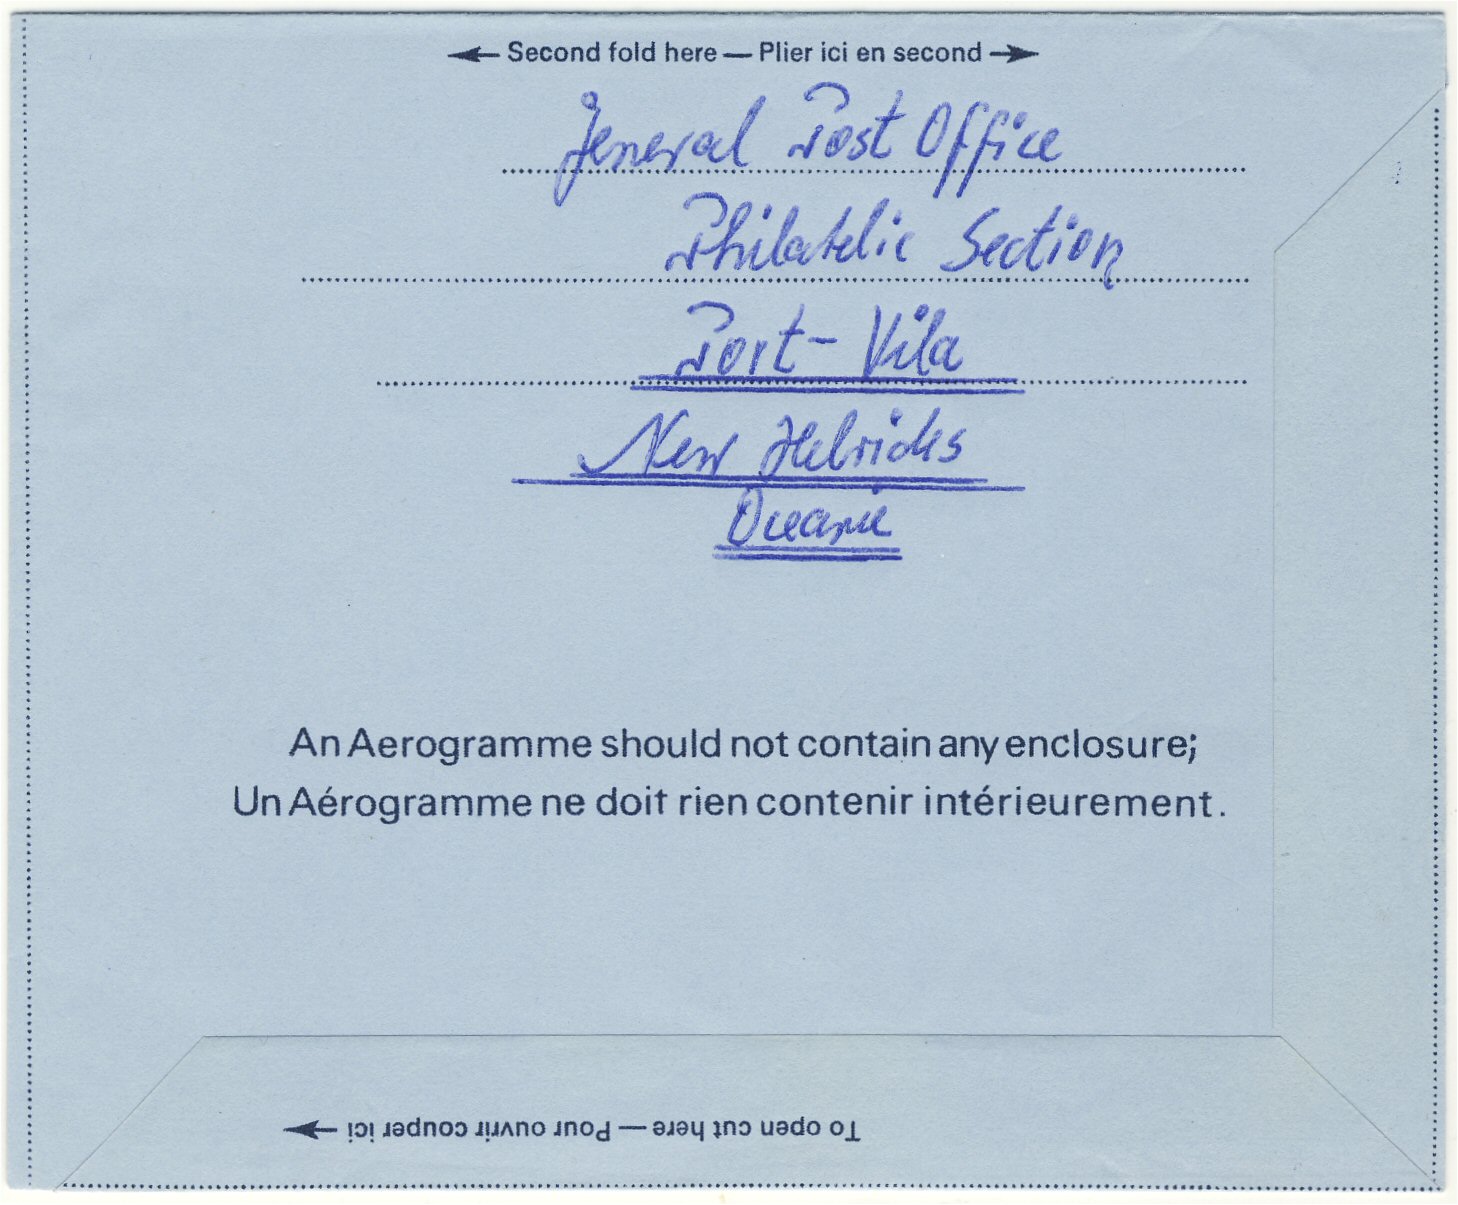 ← Second fold here — Plier ici en second →
General Post Office
Philatelic Section
Port-Vila
New Hebrides
Oceanie
An Aerogramme should not contain any enclosure;
Un Aérogramme ne doit rien contenir intérieurement.
To open cut here — Pour ouvrir couper ici →